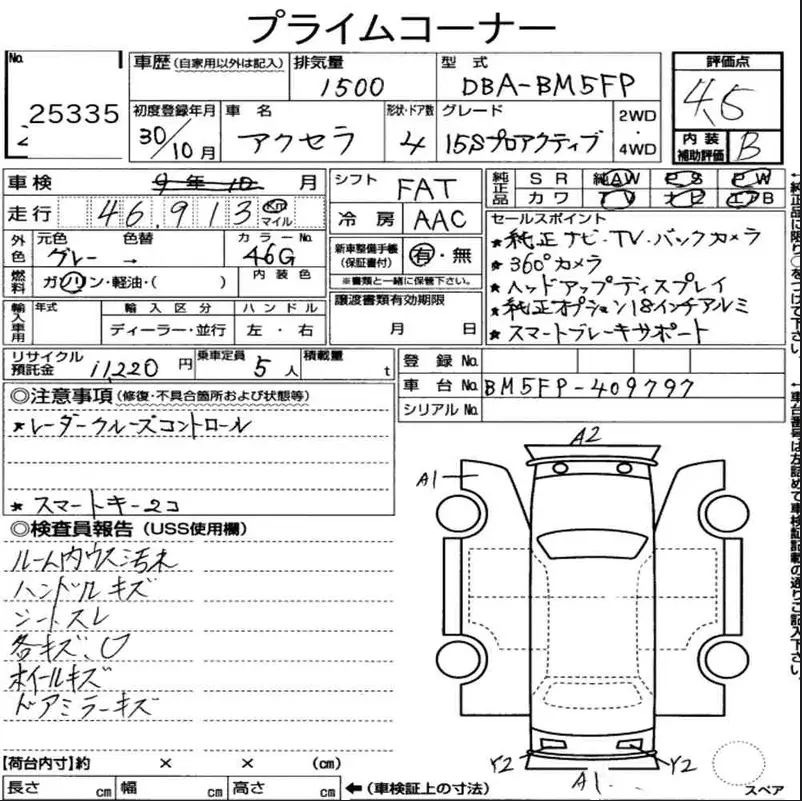 プライムコーナー
No.
25335
車歴(自家用以外は記入)
排気量
1500
型式
DBA-BM5FP
評価点
4.5
初度登録年月
30/10月
車名
アクセラ
形状・ドア数
4
グレード
15Sプロアクティブ
2WD
・
4WD
内装
補助評価
B
車検
9年10月
走行
46,913
Km
マイル
シフト
FAT
冷房
AAC
純正品
SR 純AW PS PW
カワ TV ナビ エアB
外色
元色 色替
グレー →
カラーNo.
46G
新車整備手帳
(保証書付)
有・無
※書類と一緒に保管下さい。
セールスポイント
★純正ナビ・TV・バックカメラ
★360°カメラ
★ヘッドアップディスプレイ
★純正オプション18インチアルミ
★スマートブレーキサポート
燃料
ガソリン・軽油・( )
内装色
輸入車用
年式
輸入区分
ディーラー・並行
ハンドル
左・右
譲渡書類有効期限
月 日
リサイクル
預託金
11,220円
乗車定員
5人
積載量
t
登録No.
車台No.
BM5FP-409797
シリアルNo.
◎注意事項(修復・不具合箇所および状態等)
★レーダークルーズコントロール
★スマートキー2コ
◎検査員報告(USS使用欄)
ルーム内ウス汚れ
ハンドルキズ
シートスレ
各キズ、U
ホイールキズ
ドアミラーキズ
A2
A1
Y2
A1
Y2
スペア
【荷台内寸】約 × × (cm)
長さ cm 幅 cm 高さ cm
←(車検証上の寸法)
←純正品に限り○をつけて下さい。
←車台番号は左詰めで車検証記載の通りご記入下さい。